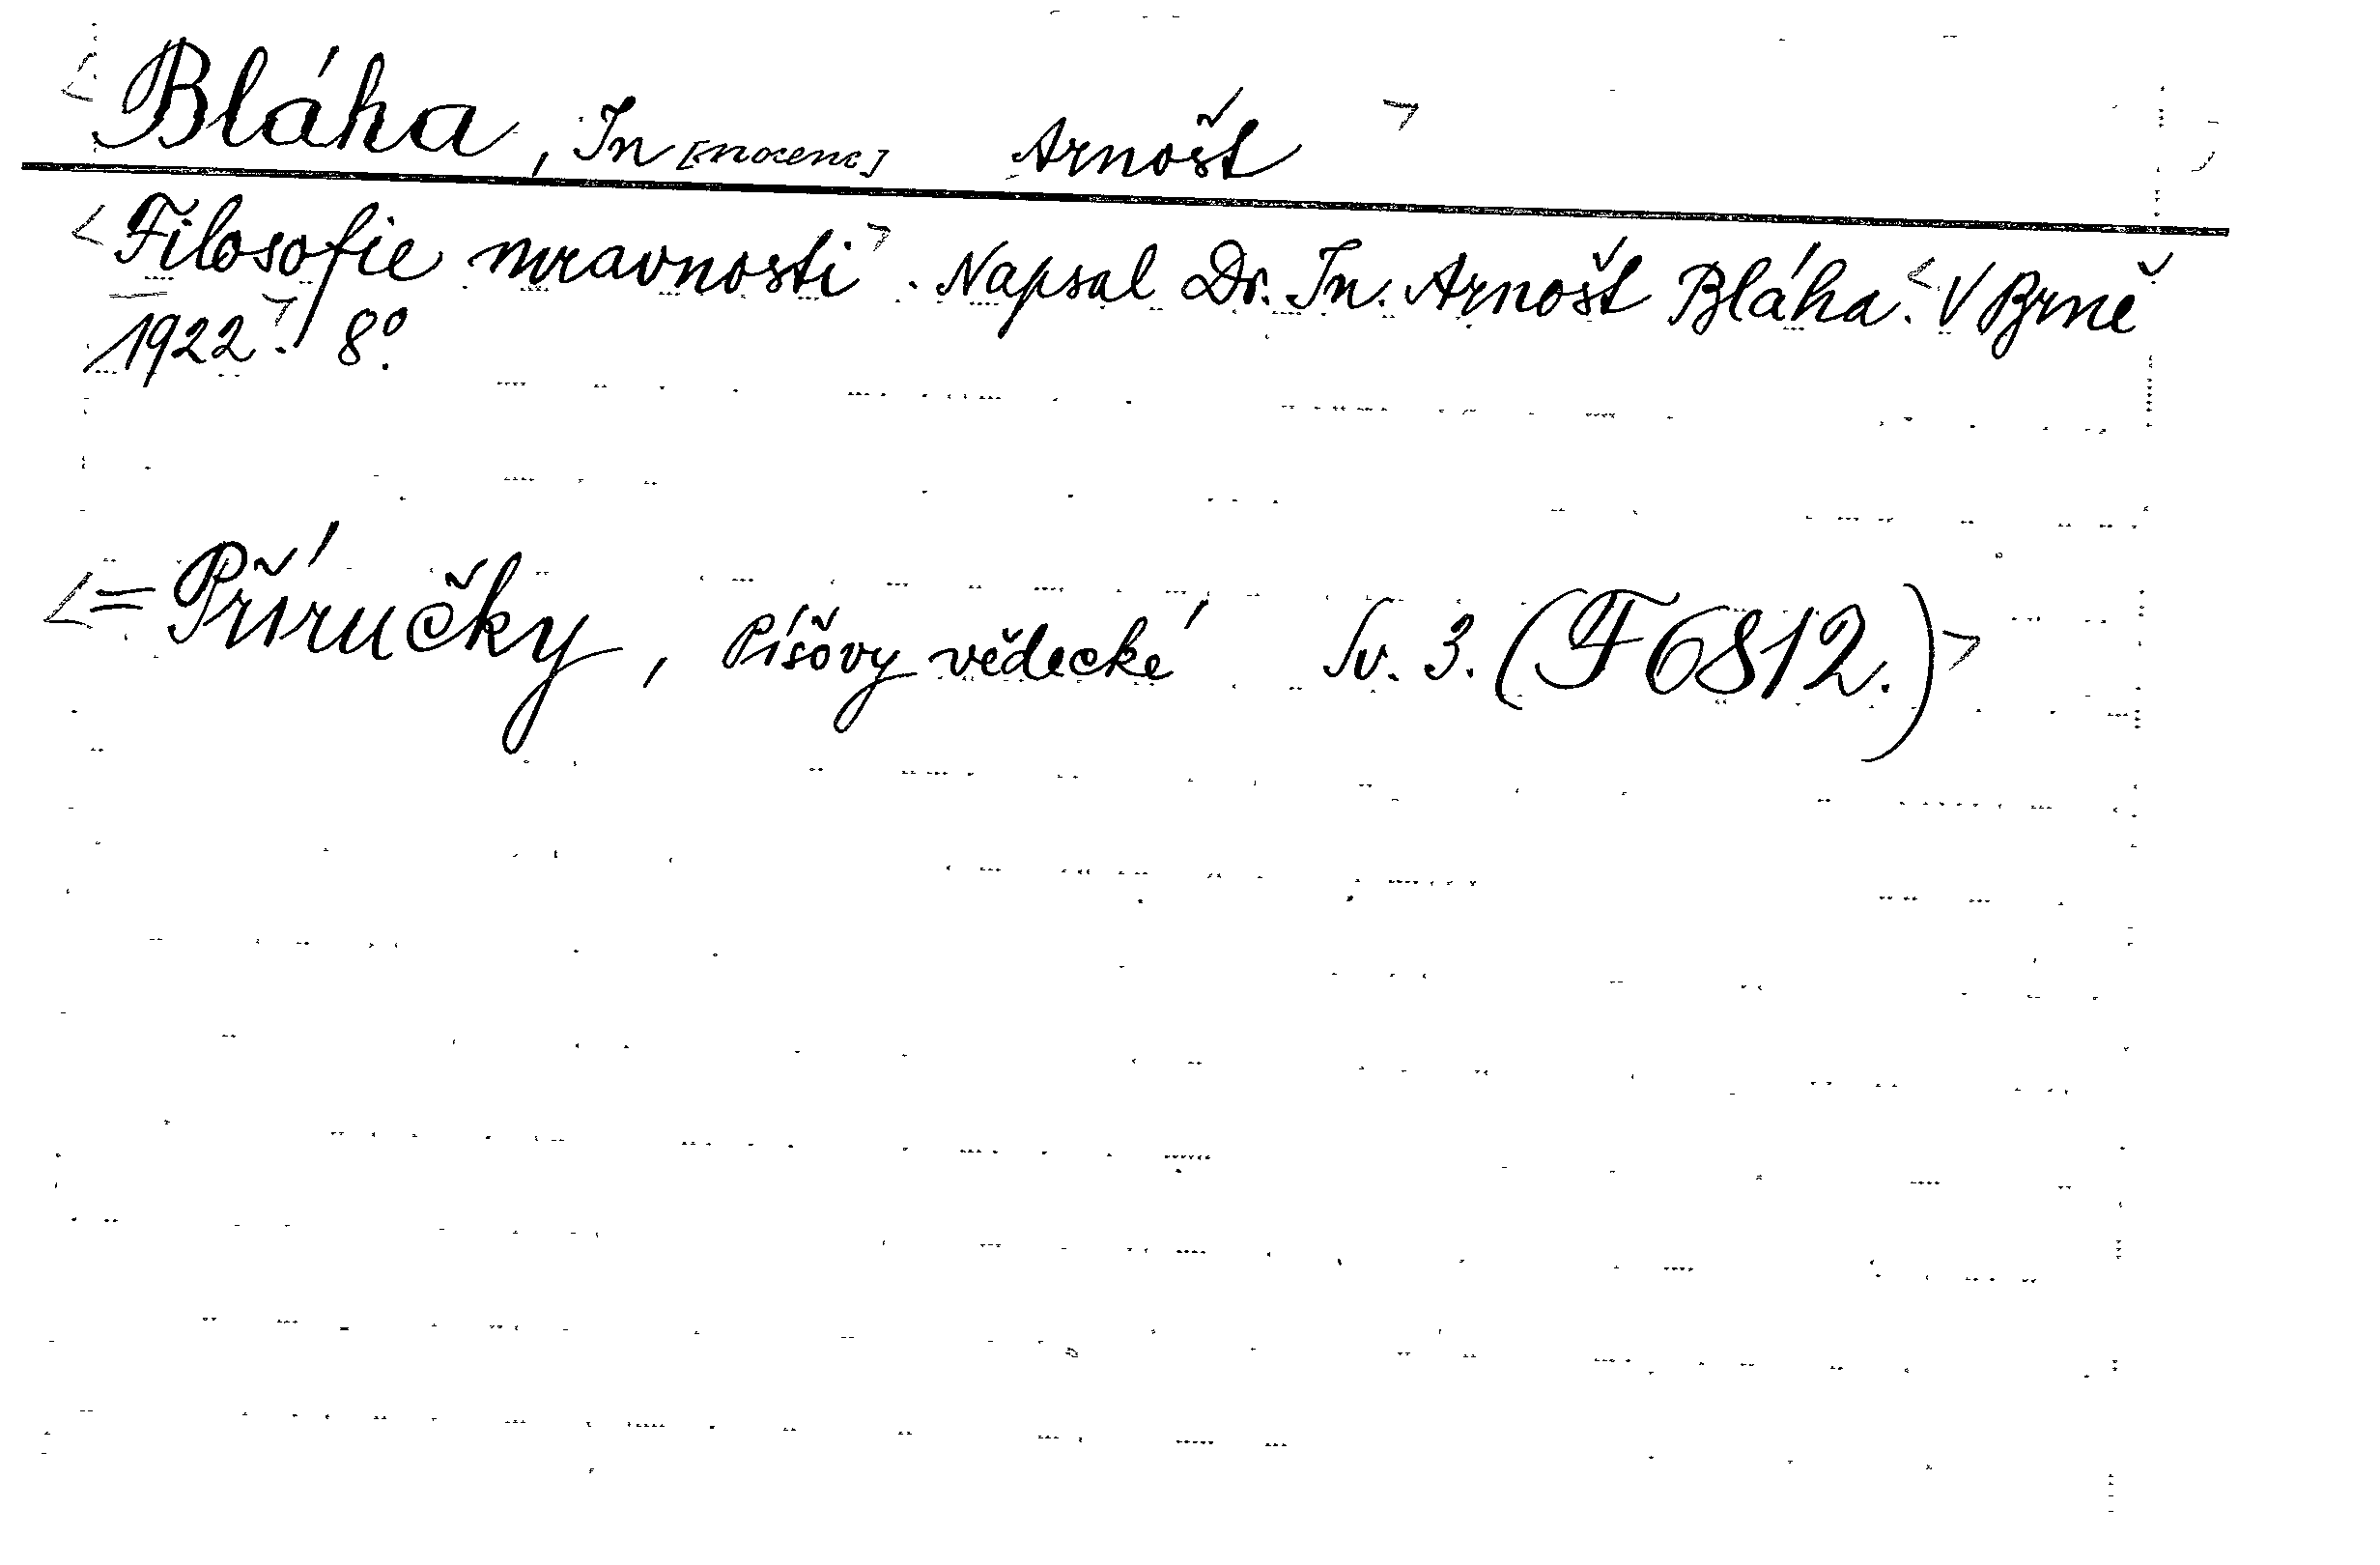 <Bláha, In[nocenc] Arnošt>
<Filosofie mravnosti>. Napsal Dr. In. Arnošt Bláha.<V Brně
1922>. 8°.
<= Příručky, Píšovy vědecké Sv. 3. (F6812.)>